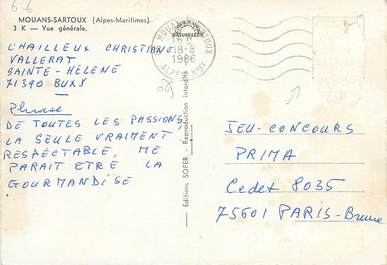 6 F
MOUANS-SARTOUX (Alpes-Maritimes)
3 K — Vue générale.
L'HAILLEUX CHRISTIANE
VALLERAT
SAINTE-HELENE
71390 BUXY
Phrase
DE TOUTES LES PASSIONS
LA SEULE VRAIMENT
RESPECTABLE, ME
PARAIT ETRE LA
GOURMANDISE
Editions SOFER - Reproduction interdite
NATURELLES
18-8
1986
JEU-CONCOURS
PRIMA
Cedex 8035
75601 PARIS-Brune